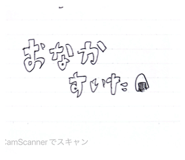 おなか
すいた
CamScannerでスキャン